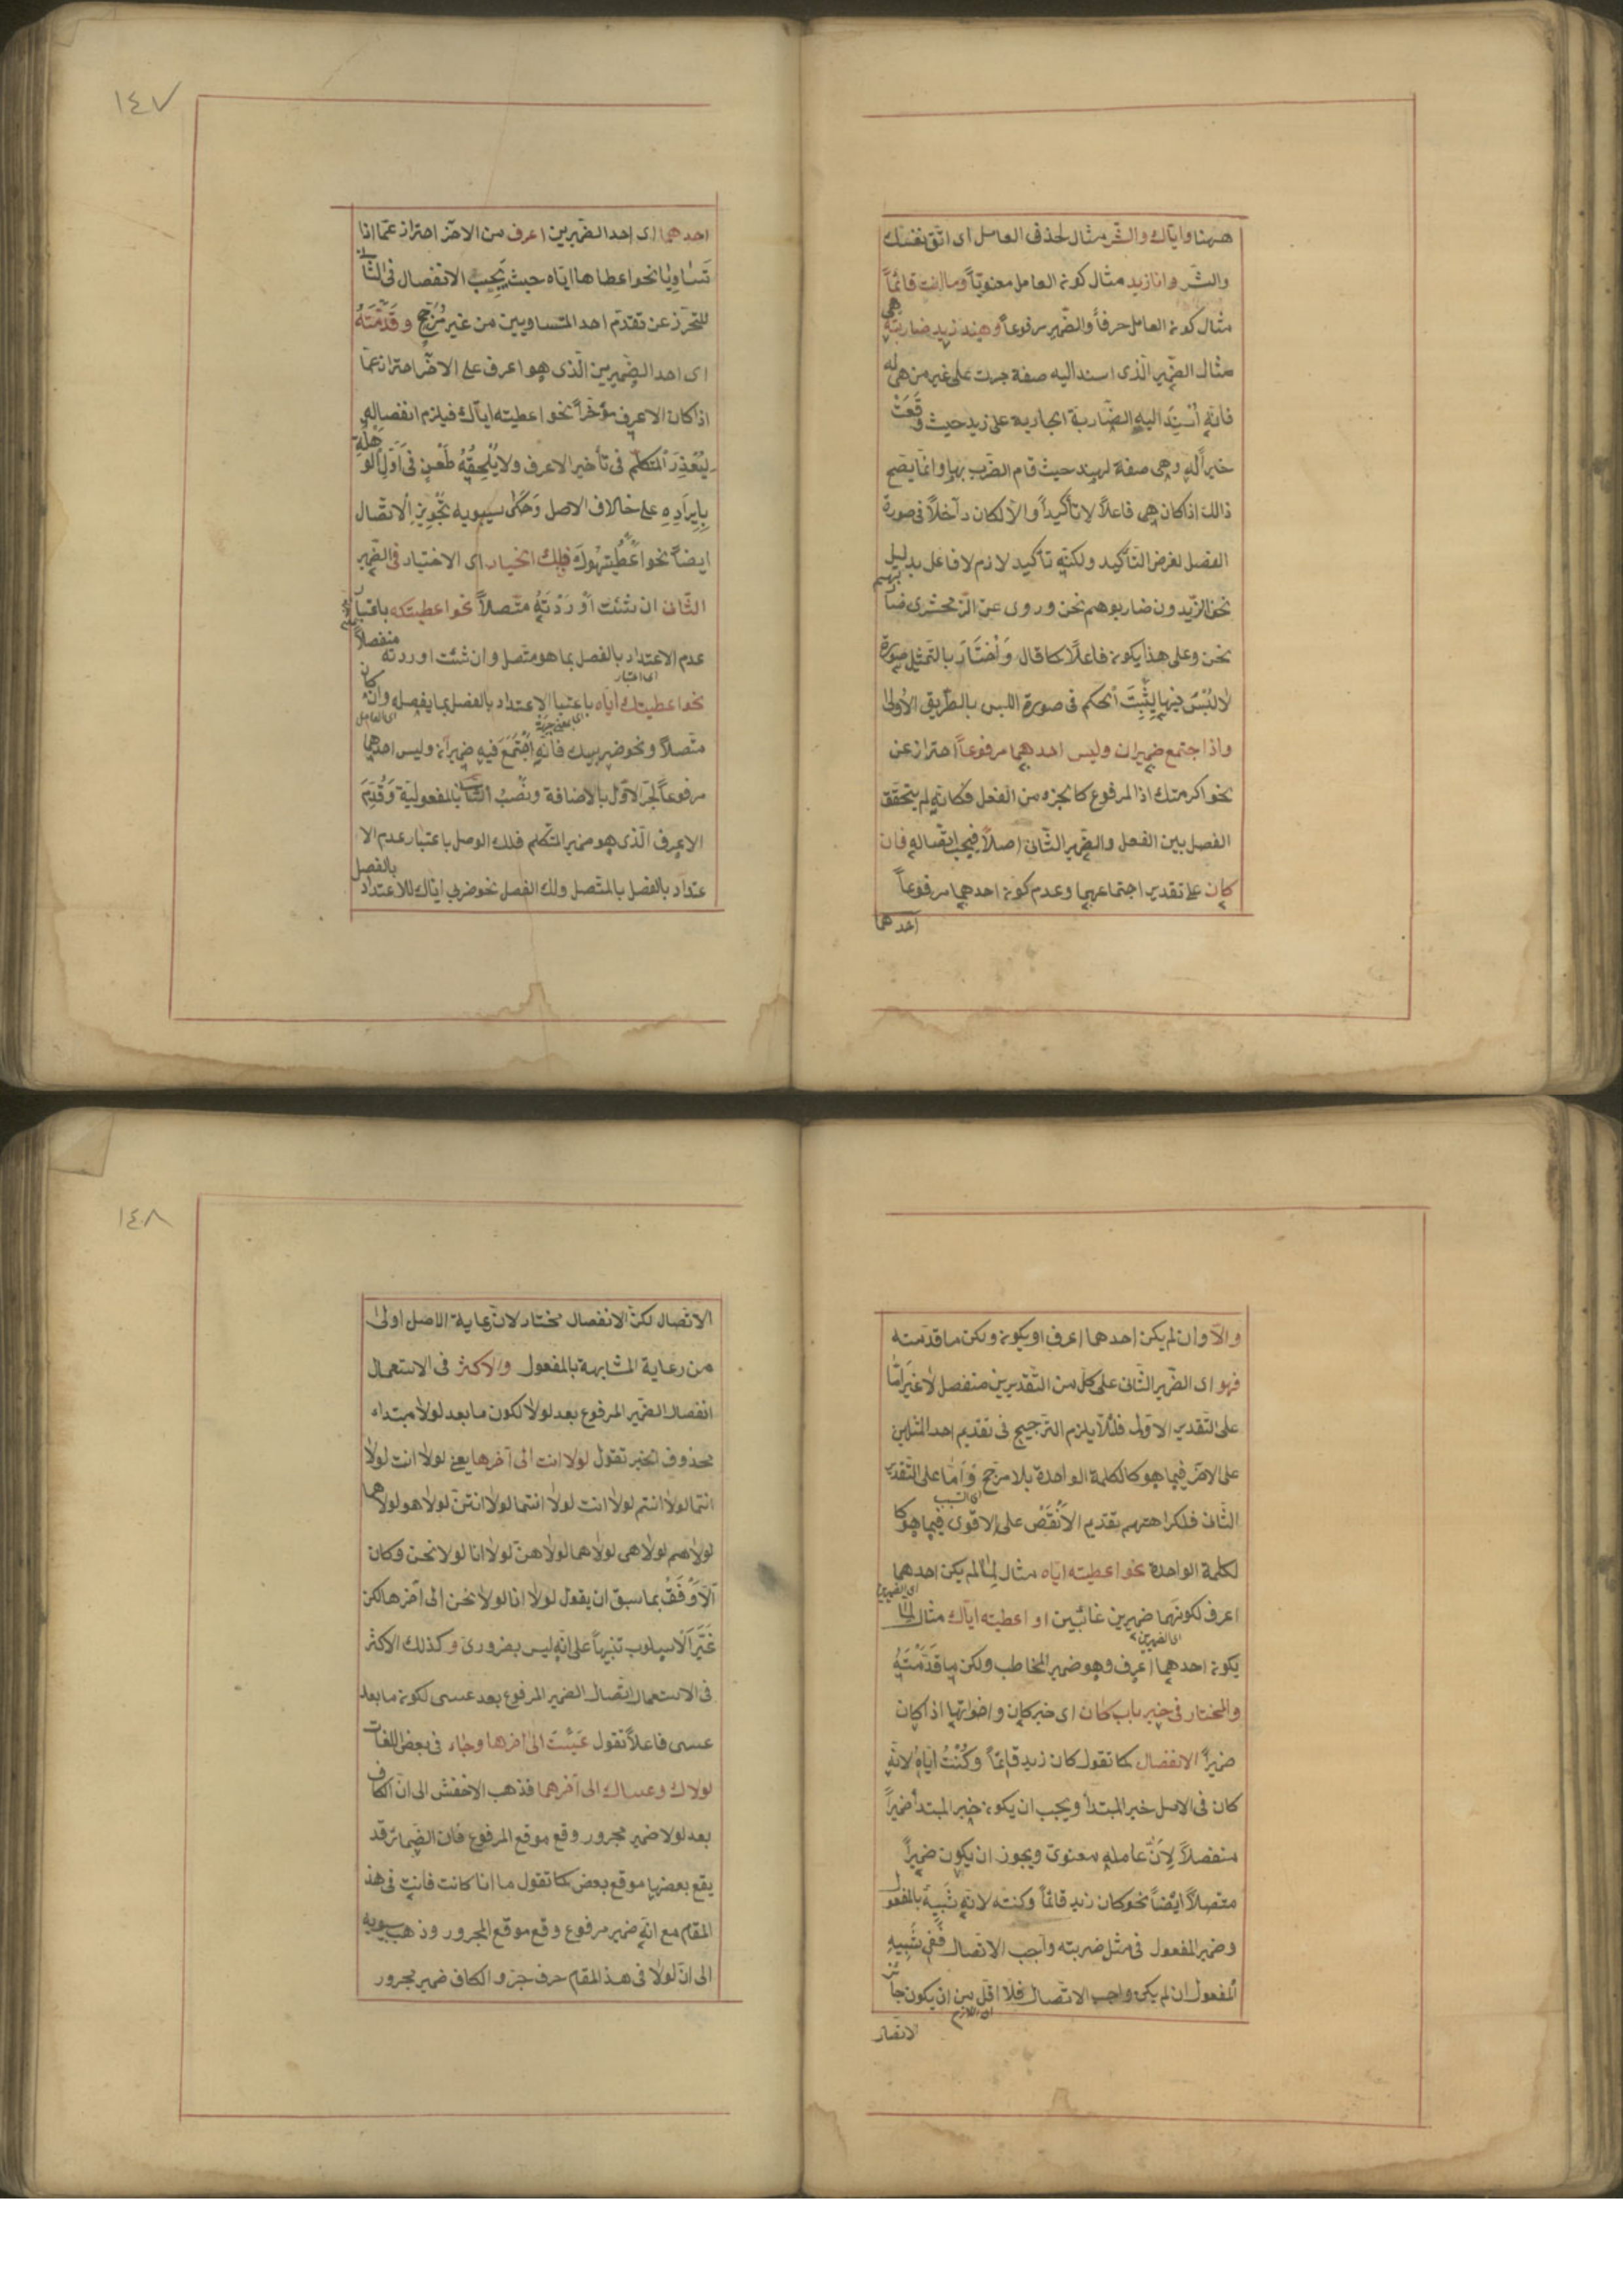 ههنا واياك والشر مثال لحذف العامل اى اتق نفسك
والشر وانا زيد مثال كون العامل معنويّاً وما انت قائماً
مثال كون العامل حرفاً والضمير مرفوعاً وهند زيد ضاربته هى
مثال الضمير الّذى اسند اليه صفة جرت على غير من هى له
فانّه اُسْنِدَ اليه الضّاربة الجارية على زيد حيث وقَعَتْ
خبراً له وهى صفة لهند حيث قام الضرب بها وانما يصح
ذالك اذا كان هى فاعلاً لا تأكيداً والّا لكان داخلاً فى صورة
الفصل لغرض التأكيد ولكنّه تأكيد لازم لا فاعل بدليل
نحو الزيدون ضاربوهم نحن وروى عن الزمخشرى ضاربهم
نحن وعلى هذا يكون فاعلاً كما قال وَاخْتَارَ بالتمثيل صورة
لا لَبْسَ فيها لِيُثْبِتَ الحكم فى صورة اللبس بالطّريق الاُولى
واذا اجتمع ضميران وليس احدهما مرفوعاً احتراز عن
نحو اكرمتك اذ المرفوع كالجزء من الفعل فكانّه لم يتحقق
الفصل بين الفعل والضّمير الثّانى اصلاً فيجب اتّصاله فان
كان على تقدير اجتماعهما وعدم كون احدهما مرفوعاً
احدهما
١٤٧
احدهما اى احد الضميرين اعرف من الاخر احتراز عمّا اذا
تساويا نحو اعطاها ايّاه حيث يَجِبُ الانفصال فى الثّانى
للتحرّز عن تقدّم احد المتساويين من غير مُرَجِّحٍ وقَدَّمْتَهُ
اى احد الضميرين الّذى هو اعرف على الاخر احتراز عمّا
اذا كان الاعرف مؤخّراً نحو اعطيته ايّاك فيلزم انفصاله
لِيُعْذِرَ المتكلّم فى تأخير الاعرف ولا يَلْحَقُهُ طَعْنٌ فى اَوّل الوَهْلَةِ
بِاِيرادِهِ على خلاف الاصل وَحَكَى سيبويه تَجْوِيزَ الاتّصال
ايضاً نحو اَعْطَيْتَهُوكَ فلك الخيار اى الاختيار فى الضّمير
الثّانى ان شئت اَوْرَدْتَهُ متّصلاً نحو اعطيتكه باعتبار
عدم الاعتداد بالفصل بما هو متّصل وان شئت اوردته منفصلاً
نحو اعطيتك ايّاه باعتبار الاعتداد بالفصل بما يفصله وان كان
متّصلاً ونحو ضربيك فانّه اِجْتَمَعَ فيه ضميران وليس احدهما
مرفوعاً لجرّ الاوّل بالاضافة ونَصْبُ الثّانى بالمفعوليّة وَقُدِّمَ
الاعرف الّذى هو ضمير المتكلم فلك الوصل باعتبار عدم الا
عتداد بالفصل بالمتّصل ولك الفصل نحو ضربى ايّاك للاعتداد بالفصل
والّا وان لم يكن احدهما اعرف او يكون ولكن ما قدّمته
فهو اى الضّمير الثّانى على كلّ من التّقديرين منفصل لا غيرَ اَمّا
على التّقدير الاوّل فلئلّا يلزم الترجيح فى تقديم احد المثلين
على الاخر فيما هو كالكلمة الواحدة بلا مرجّح وَاَمّا على التّقدير
الثّانى فلكراهتهم تقديم الاَنْقَصْ على الاقوى فيما هو كا
لكلمة الواحدة نحو اعطيته ايّاه مثال لما لم يكن احدهما
اعرف لكونهما ضميرين غائبين او اعطيته ايّاك مثال لما
يكون احدهما اعرف وهو ضمير المخاطب ولكن ما قَدَّمْتَهُ
والمختار فى خبر باب كان اى خبر كان واخواتها اذا كان
ضميراً الانفصال كما تقول كان زيد قائماً وكُنْتُ ايّاهُ لانّه
كان فى الاصل خبر المبتدأ ويجب ان يكون خبر المبتدأ ضميراً
منفصلاً لِاَنَّ عامله معنوى ويجوز ان يكون ضميراً
متّصلاً ايضاً نحو كان زيد قائماً وكنته لانّه شَبِيهٌ بالمفعول
وضمير المفعول فى مثل ضربته واجب الاتّصال فَفِى شَبِيهِ
المفعول ان لم يكن واجب الاتّصال فلا اقلّ من ان يكون جائز
الاتّصال
١٤٨
الاتّصال لكنّ الانفصال مختار لانّ رعاية الاصل اولى
من رعاية المشابهة بالمفعول والاكثر فى الاستعمال
انفصال الضمير المرفوع بعد لولا لكون ما بعد لولا مبتداء
محذوف الخبر تقول لولا انت الى آخرها يعنى لولا انت لولا
انتما لولا انتم لولا انت لولا انتما لولا انتنّ لولا هو لولا هما
لولا هم لولا هى لولا هما لولا هنّ لولا انا لولا نحن وكان
اَلْاَوْفَقُ بما سبق ان يقول لولا انا لولا نحن الى آخرها لكن
غَيَّرَ الاسلوب تنبيهاً على انّه ليس بضرورىّ وكذلك الاكثر
فى الاستعمال اتّصال الضمير المرفوع بعد عسى لكون ما بعد
عسى فاعلاً تقول عَسَيْتَ الى اخرها وجاء فى بعض اللّغات
لولاك وعساك الى آخرهما فذهب الاخفش الى انّ الكاف
بعد لولا ضمير مجرور وقع موقع المرفوع فانّ الضمائر قد
يقع بعضها موقع بعض كما تقول ما انا كانت فانت فى هذ
المقام مع انّه ضمير مرفوع وقع موقع المجرور وذهب سيبويه
الى انّ لولا فى هذا المقام حرف جر والكاف ضمير مجرور